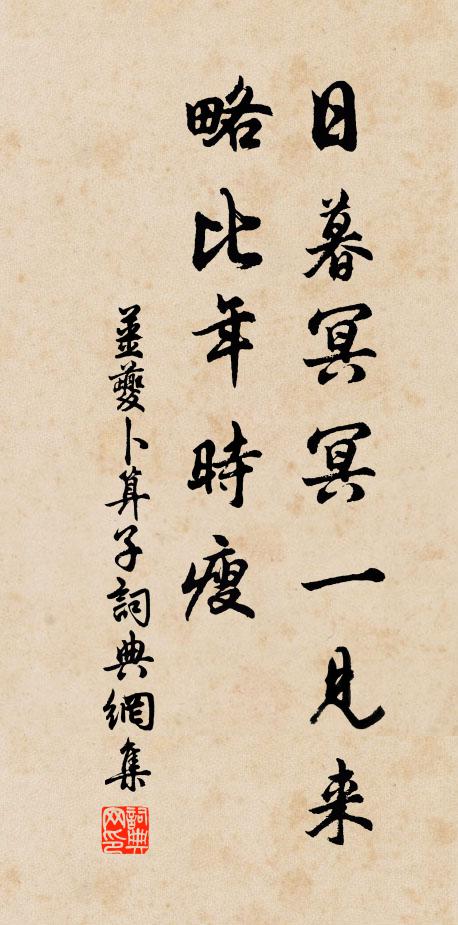 日暮冥冥一見来
略比年時瘦
姜夔卜算子詞典網集
詞典
网印